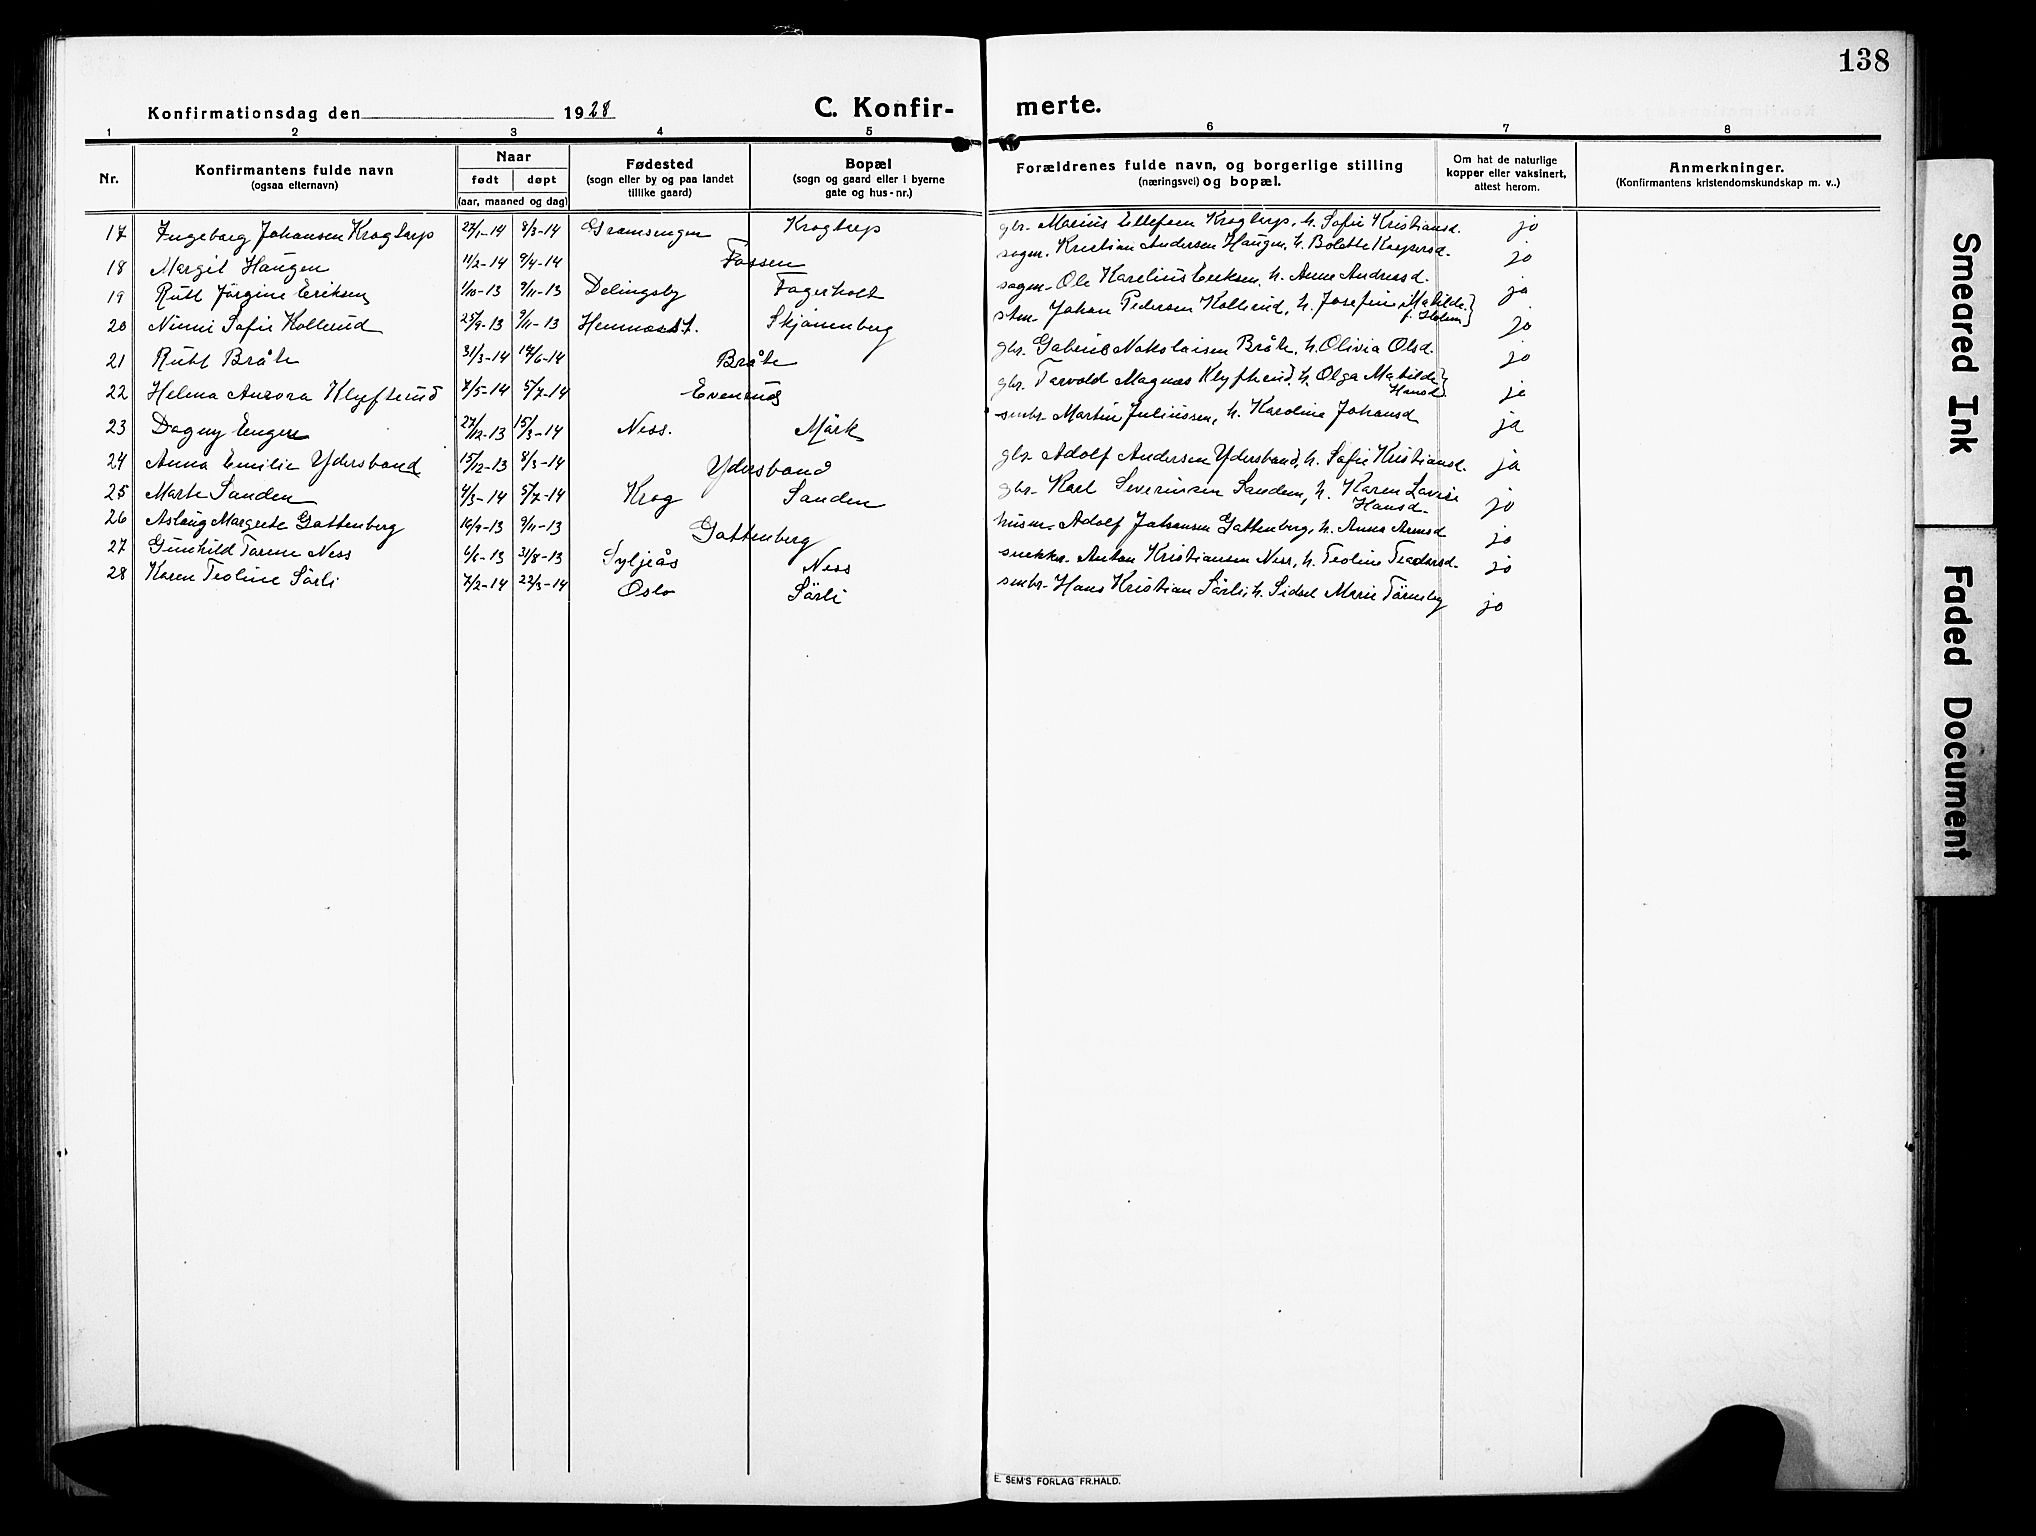 138
Konfirmationsdag den 1928 C. Konfir- merte.
1 2 3 4 5 6 7 8
Nr. Konfirmantens fulde navn (ogsaa efternavn) Naar født døpt (aar, maaned og dag) Fødested (sogn eller by og paa landet tillike gaard) Bopæl (sogn og gaard eller i byerne gate og hus-nr.) Forældrenes fulde navn, og borgerlige stilling (næringsvei) og bopæl. Om hat de naturlige kopper eller vaksinert, attest herom. Anmerkninger. (Konfirmantens kristendomskundskap m. v..)
17 Ingeborg Johansen Krogtorp 27/1-14 8/3-14 Gramsengen Krogtorp gbr. Marius Ellefsen Krogtorp, h. Sofie Kristiansd. ja
18 Margit Haugen 11/2-14 9/4-14 Fossen sagm. Kristian Andersen Haugen, h. Bolette Kaspersd. ja
19 Rutt Jörgine Eriksen 1/10-13 9/11-13 Delingsby Fagerholt sagm. Ole Karelius Eriksen, h. Anne Andreasd. ja
20 Nimi Sofie Kollerud 25/9-13 9/11-13 Hemnes st. Skjönnenberg stm. Johan Pedersen Kollerud, h. Josefine Matilde f. Holm} ja
21 Rutt Bråte 31/3-14 14/6-14 Bråte gbr. Gabriel Nikolaisen Bråte, h. Olivia Olsd. ja
22 Helma Aurora Klyfterud 7/5-14 5/7-14 Evenrud gbr. Torvald Magnus Klyfterud, h. Olga Matilde Hansd} ja
23 Dagny Engere 27/12-13 15/3-14 Ness. Mörk smbr. Martin Juliussen, h. Karoline Johansd ja
24 Anna Emilie Ydersbond 15/12-13 8/3-14 Ydersbond gbr. Adolf Andersen Ydersbond, h. Sofie Kristiansd. ja
25 Marte Sanden 4/3-14 5/7-14 Krog Sanden gbr. Karl Severinsen Sanden, h. Karen Lovise Hansd. ja
26 Aslaug Margrete Gattenberg 16/9-13 9/11-13 Gattenberg husm. Adolf Johansen Gattenberg, h. Anna Arnesd ja
27 Gunhild Torine Ness 6/6-13 31/8-13 Syljeås Ness snekkr. Anton Kristiansen Ness, h. Teoline Teodorsd. ja
28 Karen Teoline Sörli 7/2-14 22/3-14 Oslo Sörli smbr. Hans Kristian Sörli, h. Sidsel Marie Törnsby ja
E. SEM'S FORLAG FR.HALD.
Smeared Ink
Faded Document